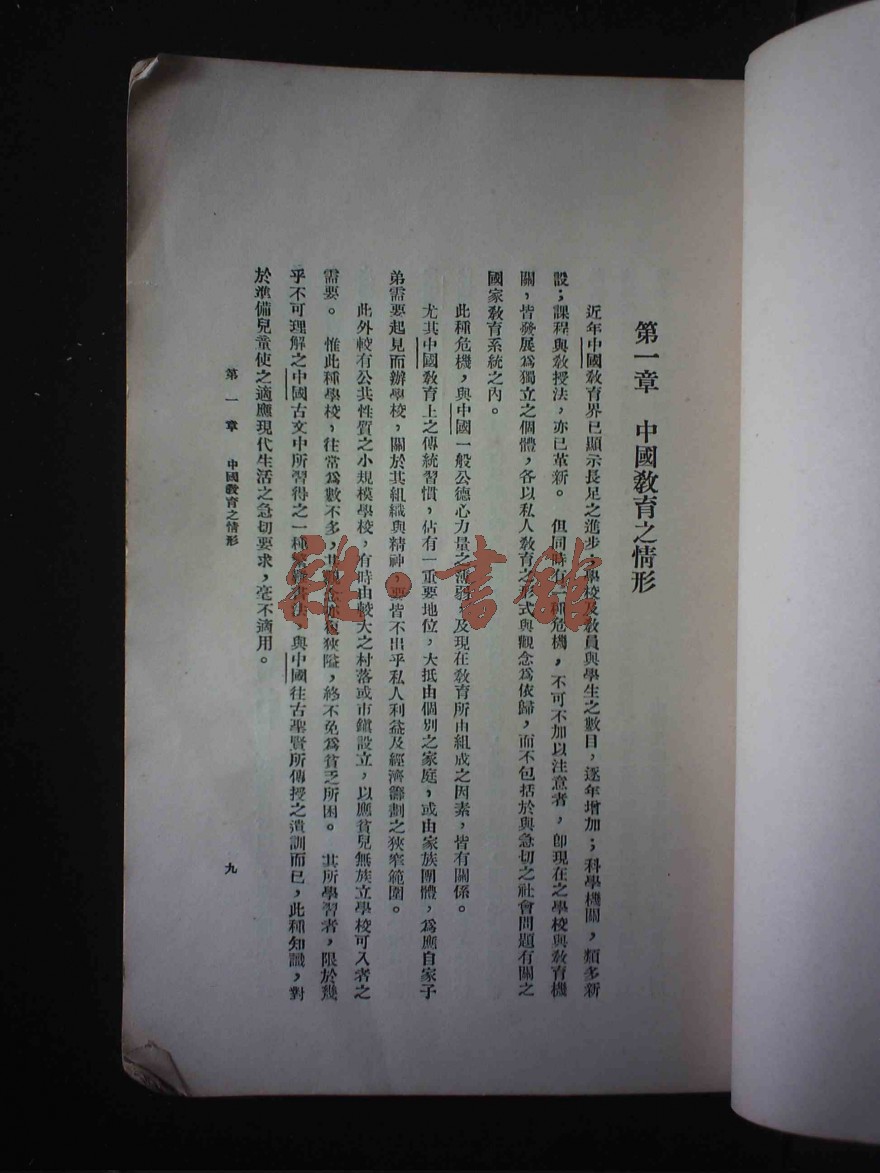 第一章 中國教育之情形
近年中國教育界已顯示長足之進步,學校及教員與學生之數目,逐年增加;科學機關,類多新
設;課程與教授法,亦已革新。 但同時有一種危機,不可不加以注意者,卽現在之學校與教育機
關,皆發展爲獨立之個體,各以私人教育之形式與觀念爲依歸,而不包括於與急切之社會問題有關之
國家教育系統之內。
此種危機,與中國一般公德心力量之薄弱,及現在教育所由組成之因素,皆有關係。
尤其中國教育上之傳統習慣,佔有一重要地位,大抵由個別之家庭,或由家族團體,爲應自家子
弟需要起見而辦學校,關於其組織與精神,要皆不出乎私人利益及經濟籌劃之狹窄範圍。
此外較有公共性質之小規模學校,有時由較大之村落或市鎮設立,以應貧兒無族立學校可入者之
需要。 惟此種學校,往常爲數不多,其觀念亦復狹隘,終不免爲貧乏所困。 其所學習者,限於幾
乎不可理解之中國古文中所習得之一種書法,與中國往古聖賢所傳授之遺訓而已,此種知識,對
於準備兒童使之適應現代生活之急切要求,毫不適用。
第一章 中國教育之情形
九
雜·書館